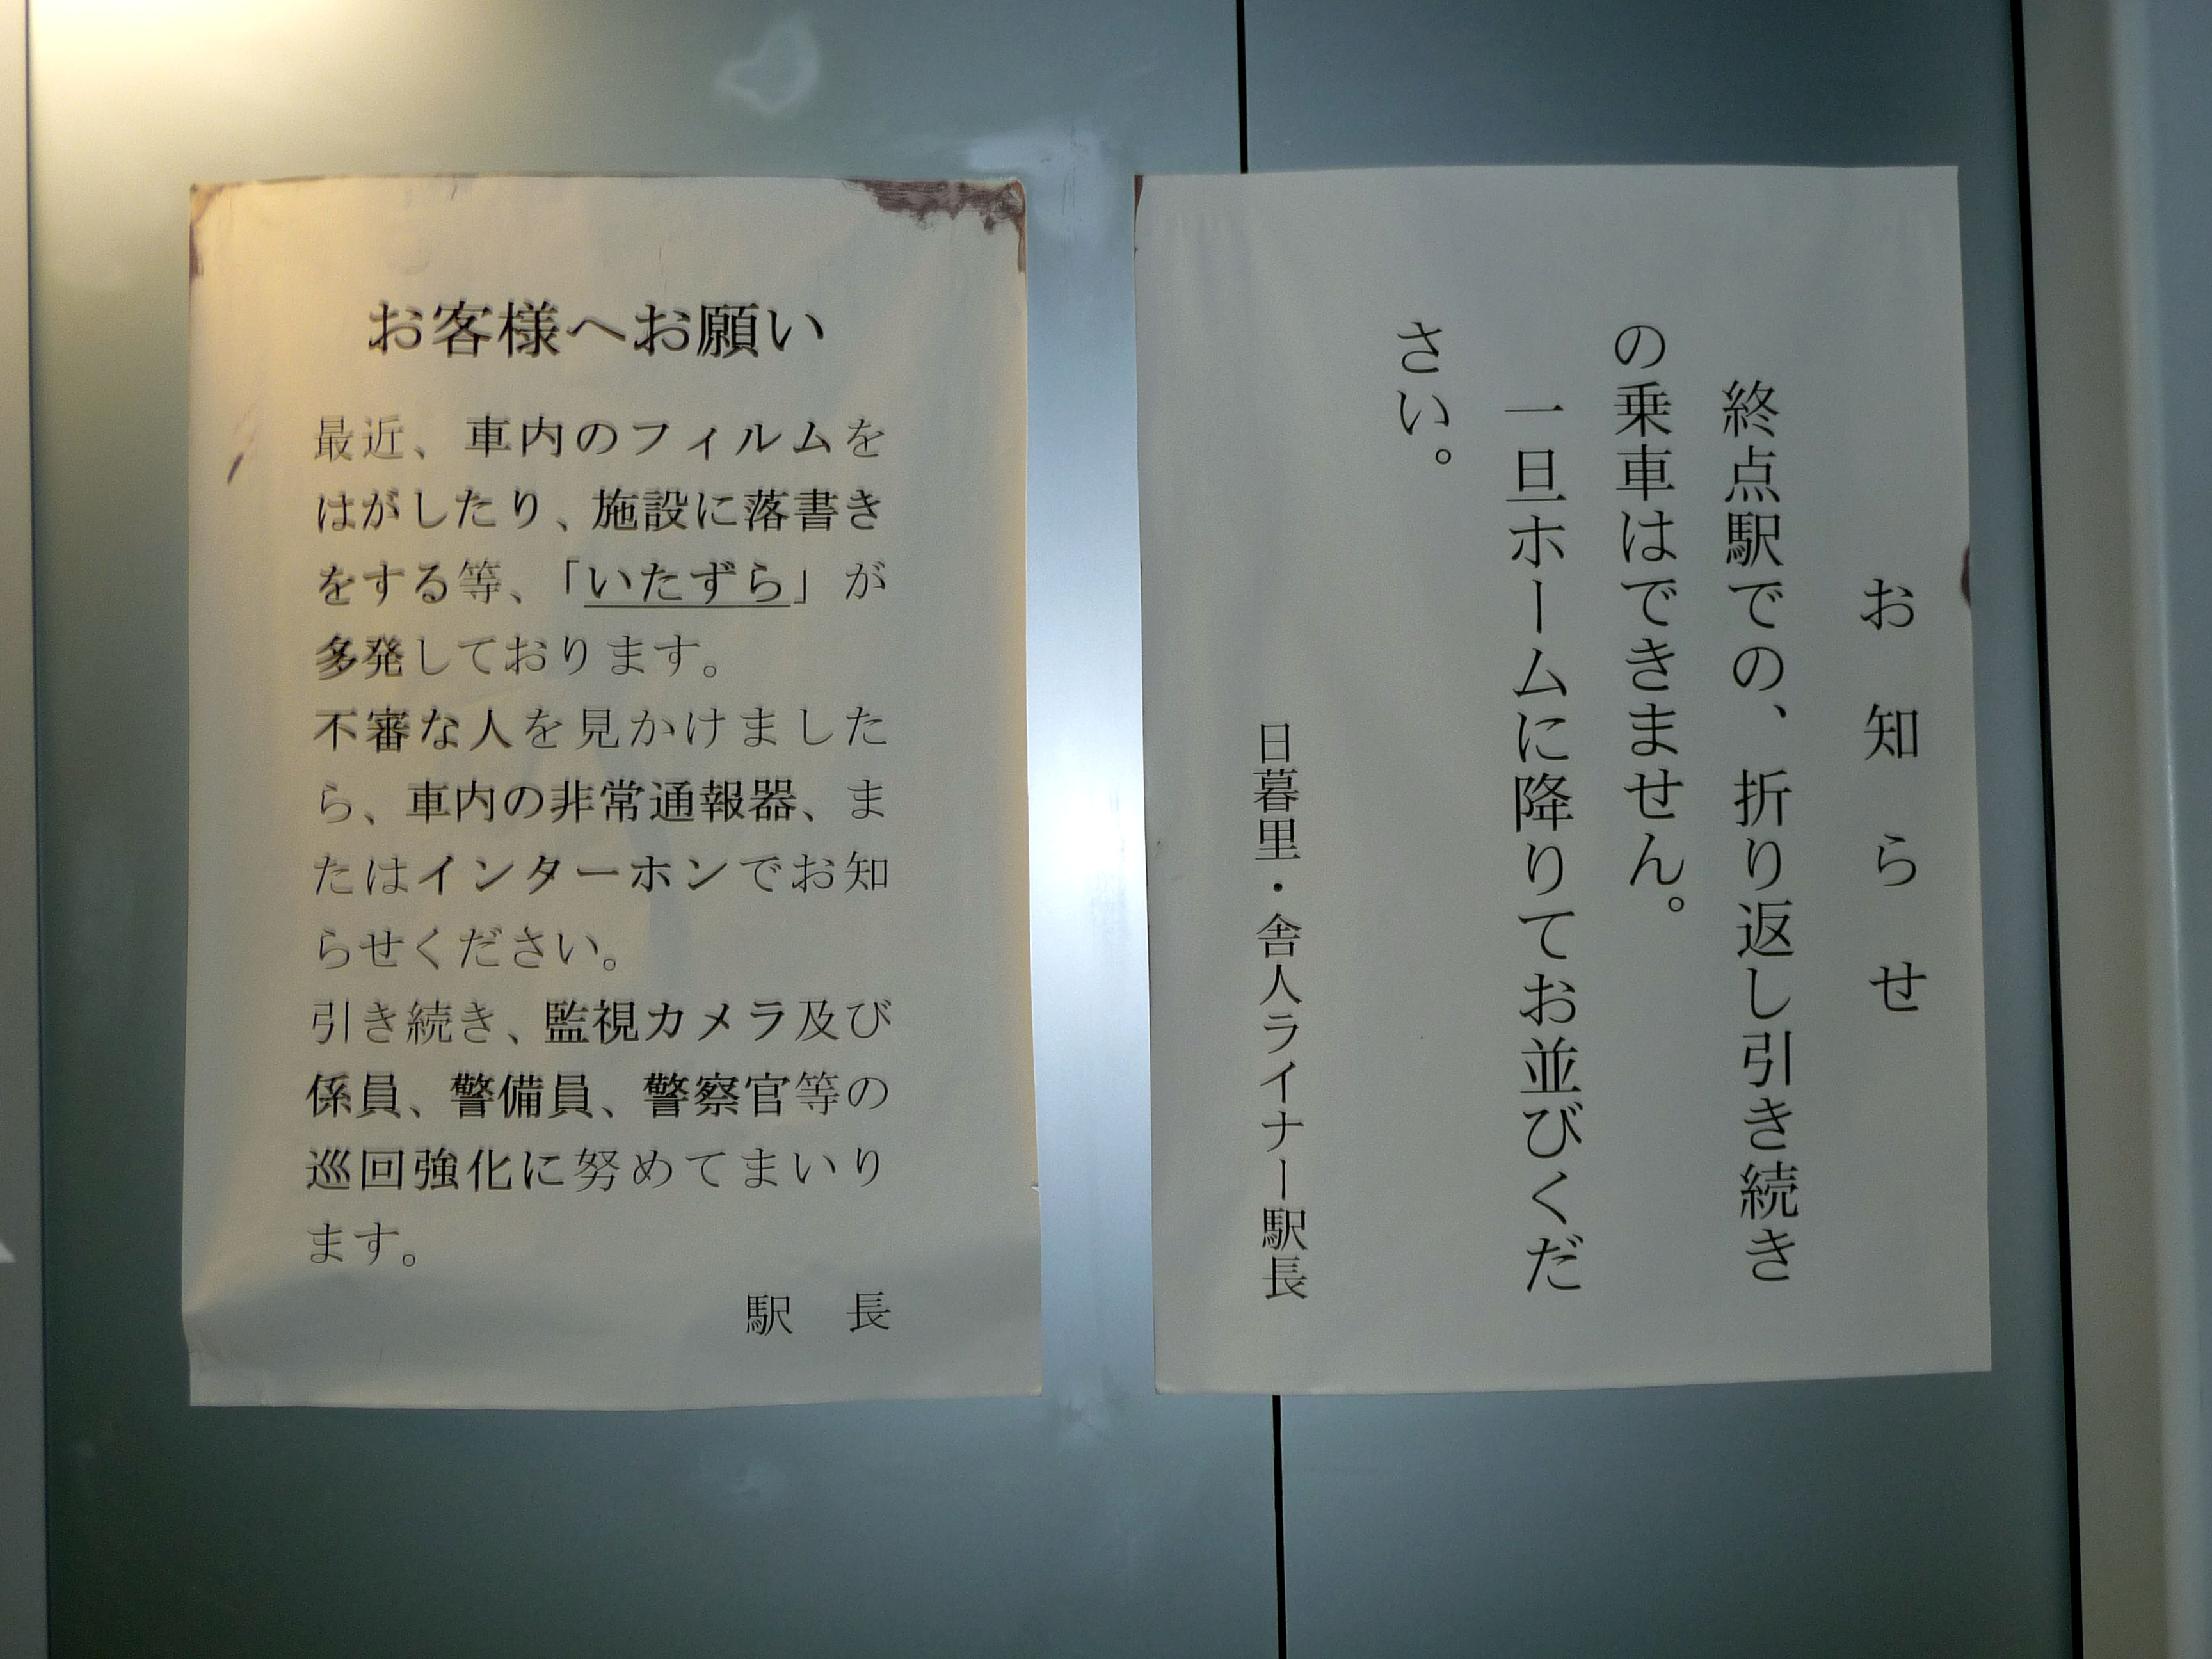 お客様へお願い
最近、車内のフィルムを
はがしたり、施設に落書き
をする等、「いたずら」が
多発しております。
不審な人を見かけました
ら、車内の非常通報器、ま
たはインターホンでお知
らせください。
引き続き、監視カメラ及び
係員、警備員、警察官等の
巡回強化に努めてまいり
ます。
駅　長
お　知　ら　せ
終点駅での、折り返し引き続き
の乗車はできません。
一旦ホームに降りてお並びくだ
さい。
日暮里・舎人ライナー駅長